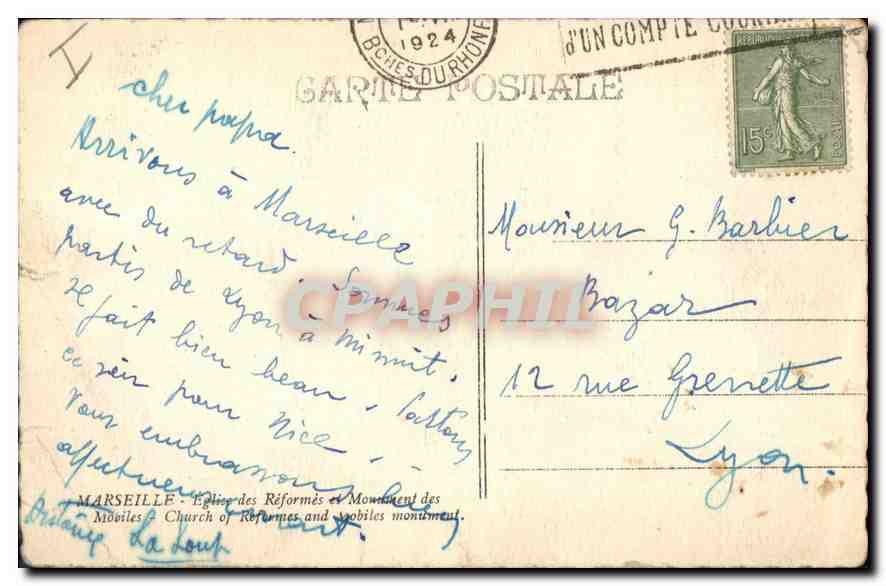 1924
BCHES DU RHÔNE
D'UN COMPTE COURANT
CARTE POSTALE
RÉPUBLIQUE
15c
POSTES
I
cher papa.
Arrivons à Marseille
avec du retard. Sommes
partis de Lyon à minuit.
Il fait bien beau. Partons
ce soir pour Nice.
Vous embrassons bien
affectueusement.
La Loup
Monsieur G. Barbier
Bazar
12 rue Grenette
Lyon.
CPAPHIL
MARSEILLE - Église des Réformés et Monument des
Mobiles - Church of Reformes and Mobiles monument.